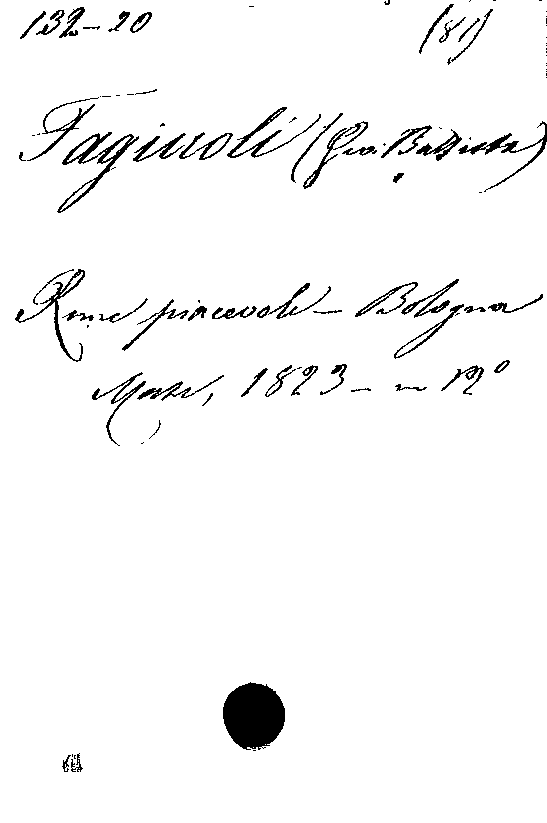 132-20 (81)
Fagiuoli (Gio. Battista)
Rime piacevoli - Bologna
Masi, 1823 - in 12º